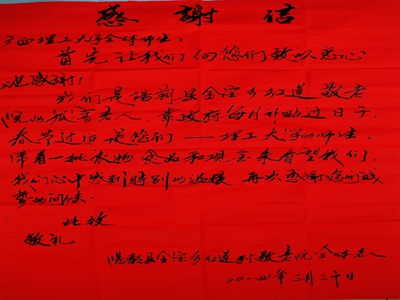 感謝信
广西理工大学全体师生:
首先让我们向您们致以衷心
地感谢!
我们是临桂县会仙乡仁道敬老
院的孤寡老人,靠政府每月补贴过日子,
春节过后是您们——理工大学的师生,
带着一批衣物食品和现金来看望我们,
我们心中感到特别的温暖,再次感谢您们的
亲切问候!
此致
敬礼
临桂县会仙乡仁道村敬老院全体老人
二〇一四年三月二十日